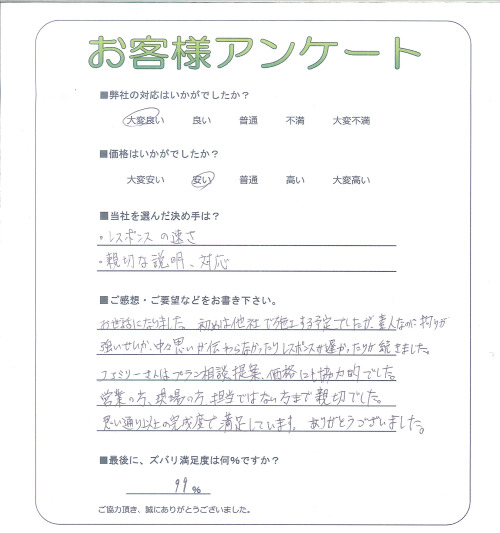 お客様アンケート
■弊社の対応はいかがでしたか？
大変良い 良い 普通 不満 大変不満
■価格はいかがでしたか？
大変安い 安い 普通 高い 大変高い
■当社を選んだ決め手は？
・レスポンスの速さ
・親切な説明、対応
■ご感想・ご要望などをお書き下さい。
お世話になりました。初めは他社で施工する予定でしたが、素人なのに拘りが
強いせいか、中々思いが伝わらなかったりレスポンスが遅かったりが続きました。
ファミリーさんはプラン相談、提案、価格にも協力的でした。
営業の方、現場の方、担当ではない方まで親切でした。
思い通り以上の完成度で満足しています。ありがとうございました。
■最後に、ズバリ満足度は何%ですか？
99 %
ご協力頂き、誠にありがとうございました。